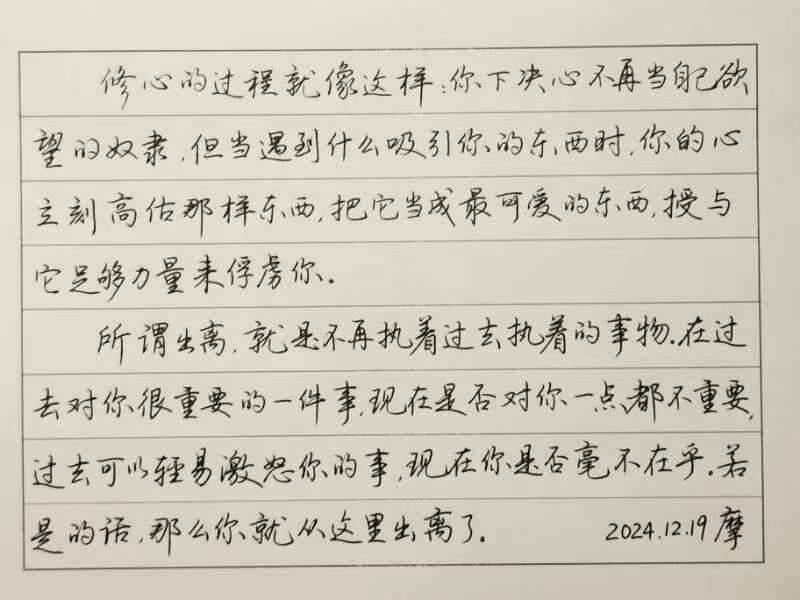 修心的过程就像这样：你下决心不再当自己欲
望的奴隶，但当遇到什么吸引你的东西时，你的心
立刻高估那样东西，把它当成最可爱的东西，授与
它足够力量来俘虏你。
所谓出离，就是不再执着过去执着的事物。在过
去对你很重要的一件事，现在是否对你一点都不重要，
过去可以轻易激怒你的事，现在你是否毫不在乎。若
是的话，那么你就从这里出离了。 2024.12.19 摩